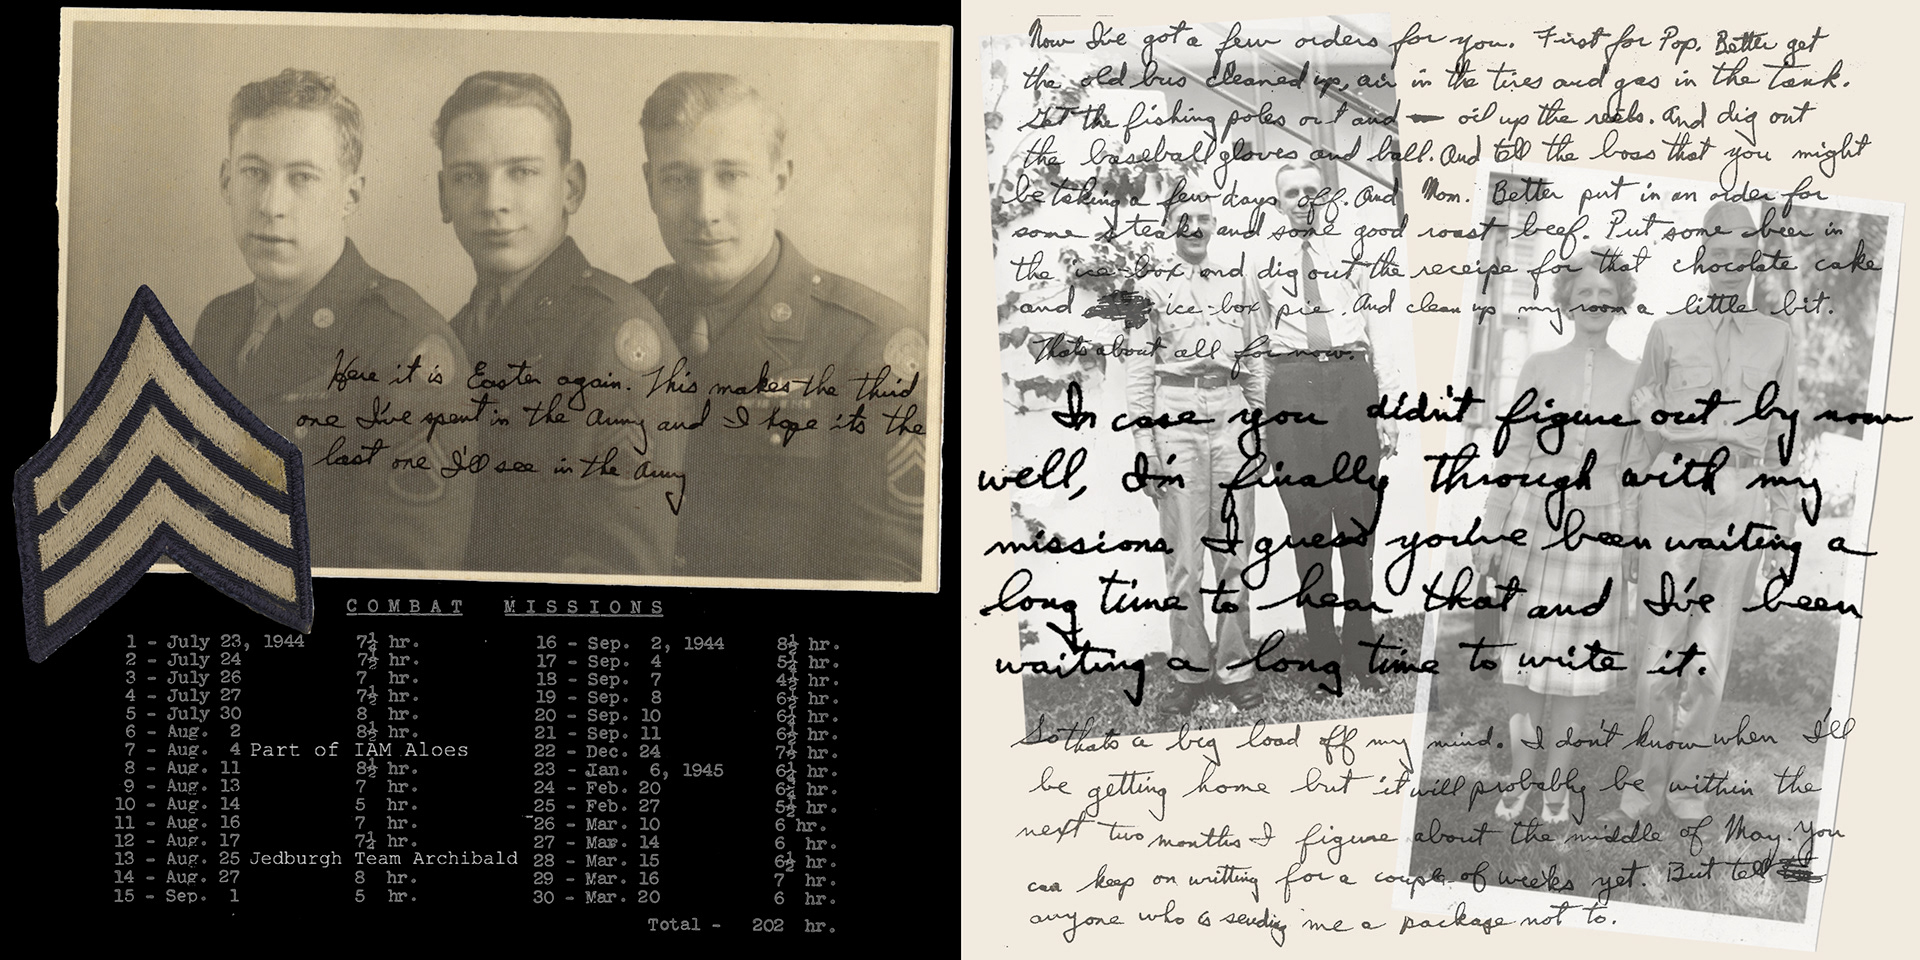 Here it is Easter again. This makes the third
one I've spent in the Army and I hope its the
last one I'll see in the Army
COMBAT MISSIONS
1 - July 23, 1944 7½ hr.
2 - July 24 7½ hr.
3 - July 26 7 hr.
4 - July 27 7½ hr.
5 - July 30 8 hr.
6 - Aug. 2 8½ hr.
7 - Aug. 4 Part of IAM Aloes
8 - Aug. 11 8½ hr.
9 - Aug. 13 7 hr.
10 - Aug. 14 5 hr.
11 - Aug. 16 7 hr.
12 - Aug. 17 7½ hr.
13 - Aug. 25 Jedburgh Team Archibald
14 - Aug. 27 8 hr.
15 - Sep. 1 5 hr.
16 - Sep. 2, 1944 8½ hr.
17 - Sep. 4 hr.
18 - Sep. 7 4½ hr.
19 - Sep. 8 hr.
20 - Sep. 10 hr.
21 - Sep. 11 6½ hr.
22 - Dec. 24 7½ hr.
23 - Jan. 6, 1945 hr.
24 - Feb. 20 hr.
25 - Feb. 27 5½ hr.
26 - Mar. 10 6 hr.
27 - Mar. 14 6 hr.
28 - Mar. 15 6½ hr.
29 - Mar. 16 7 hr.
30 - Mar. 20 6 hr.
Total - 202 hr.
Now I've got a few orders for you. First for Pop. Better get
the old bus cleaned up, air in the tires and gas in the tank.
Get the fishing poles out and oil up the reels. And dig out
the baseball gloves and ball. And tell the boss that you might
be taking a few days off. And Mom. Better put in an order for
some steaks and some good roast beef. Put some beer in
the ice-box and dig out the receipe for that chocolate cake
and ice-box pie. And clean up my room a little bit.
Thats about all for now.
In case you didn't figure out by now
well, I'm finally through with my
missions I guess you've been waiting a
long time to hear that and I've been
waiting a long time to write it.
So thats a big load off my mind. I don't know when I'll
be getting home but it will probably be within the
next two months I figure about the middle of May. You
can keep on writting for a couple of weeks yet. But tell
anyone who is sending me a package not to.